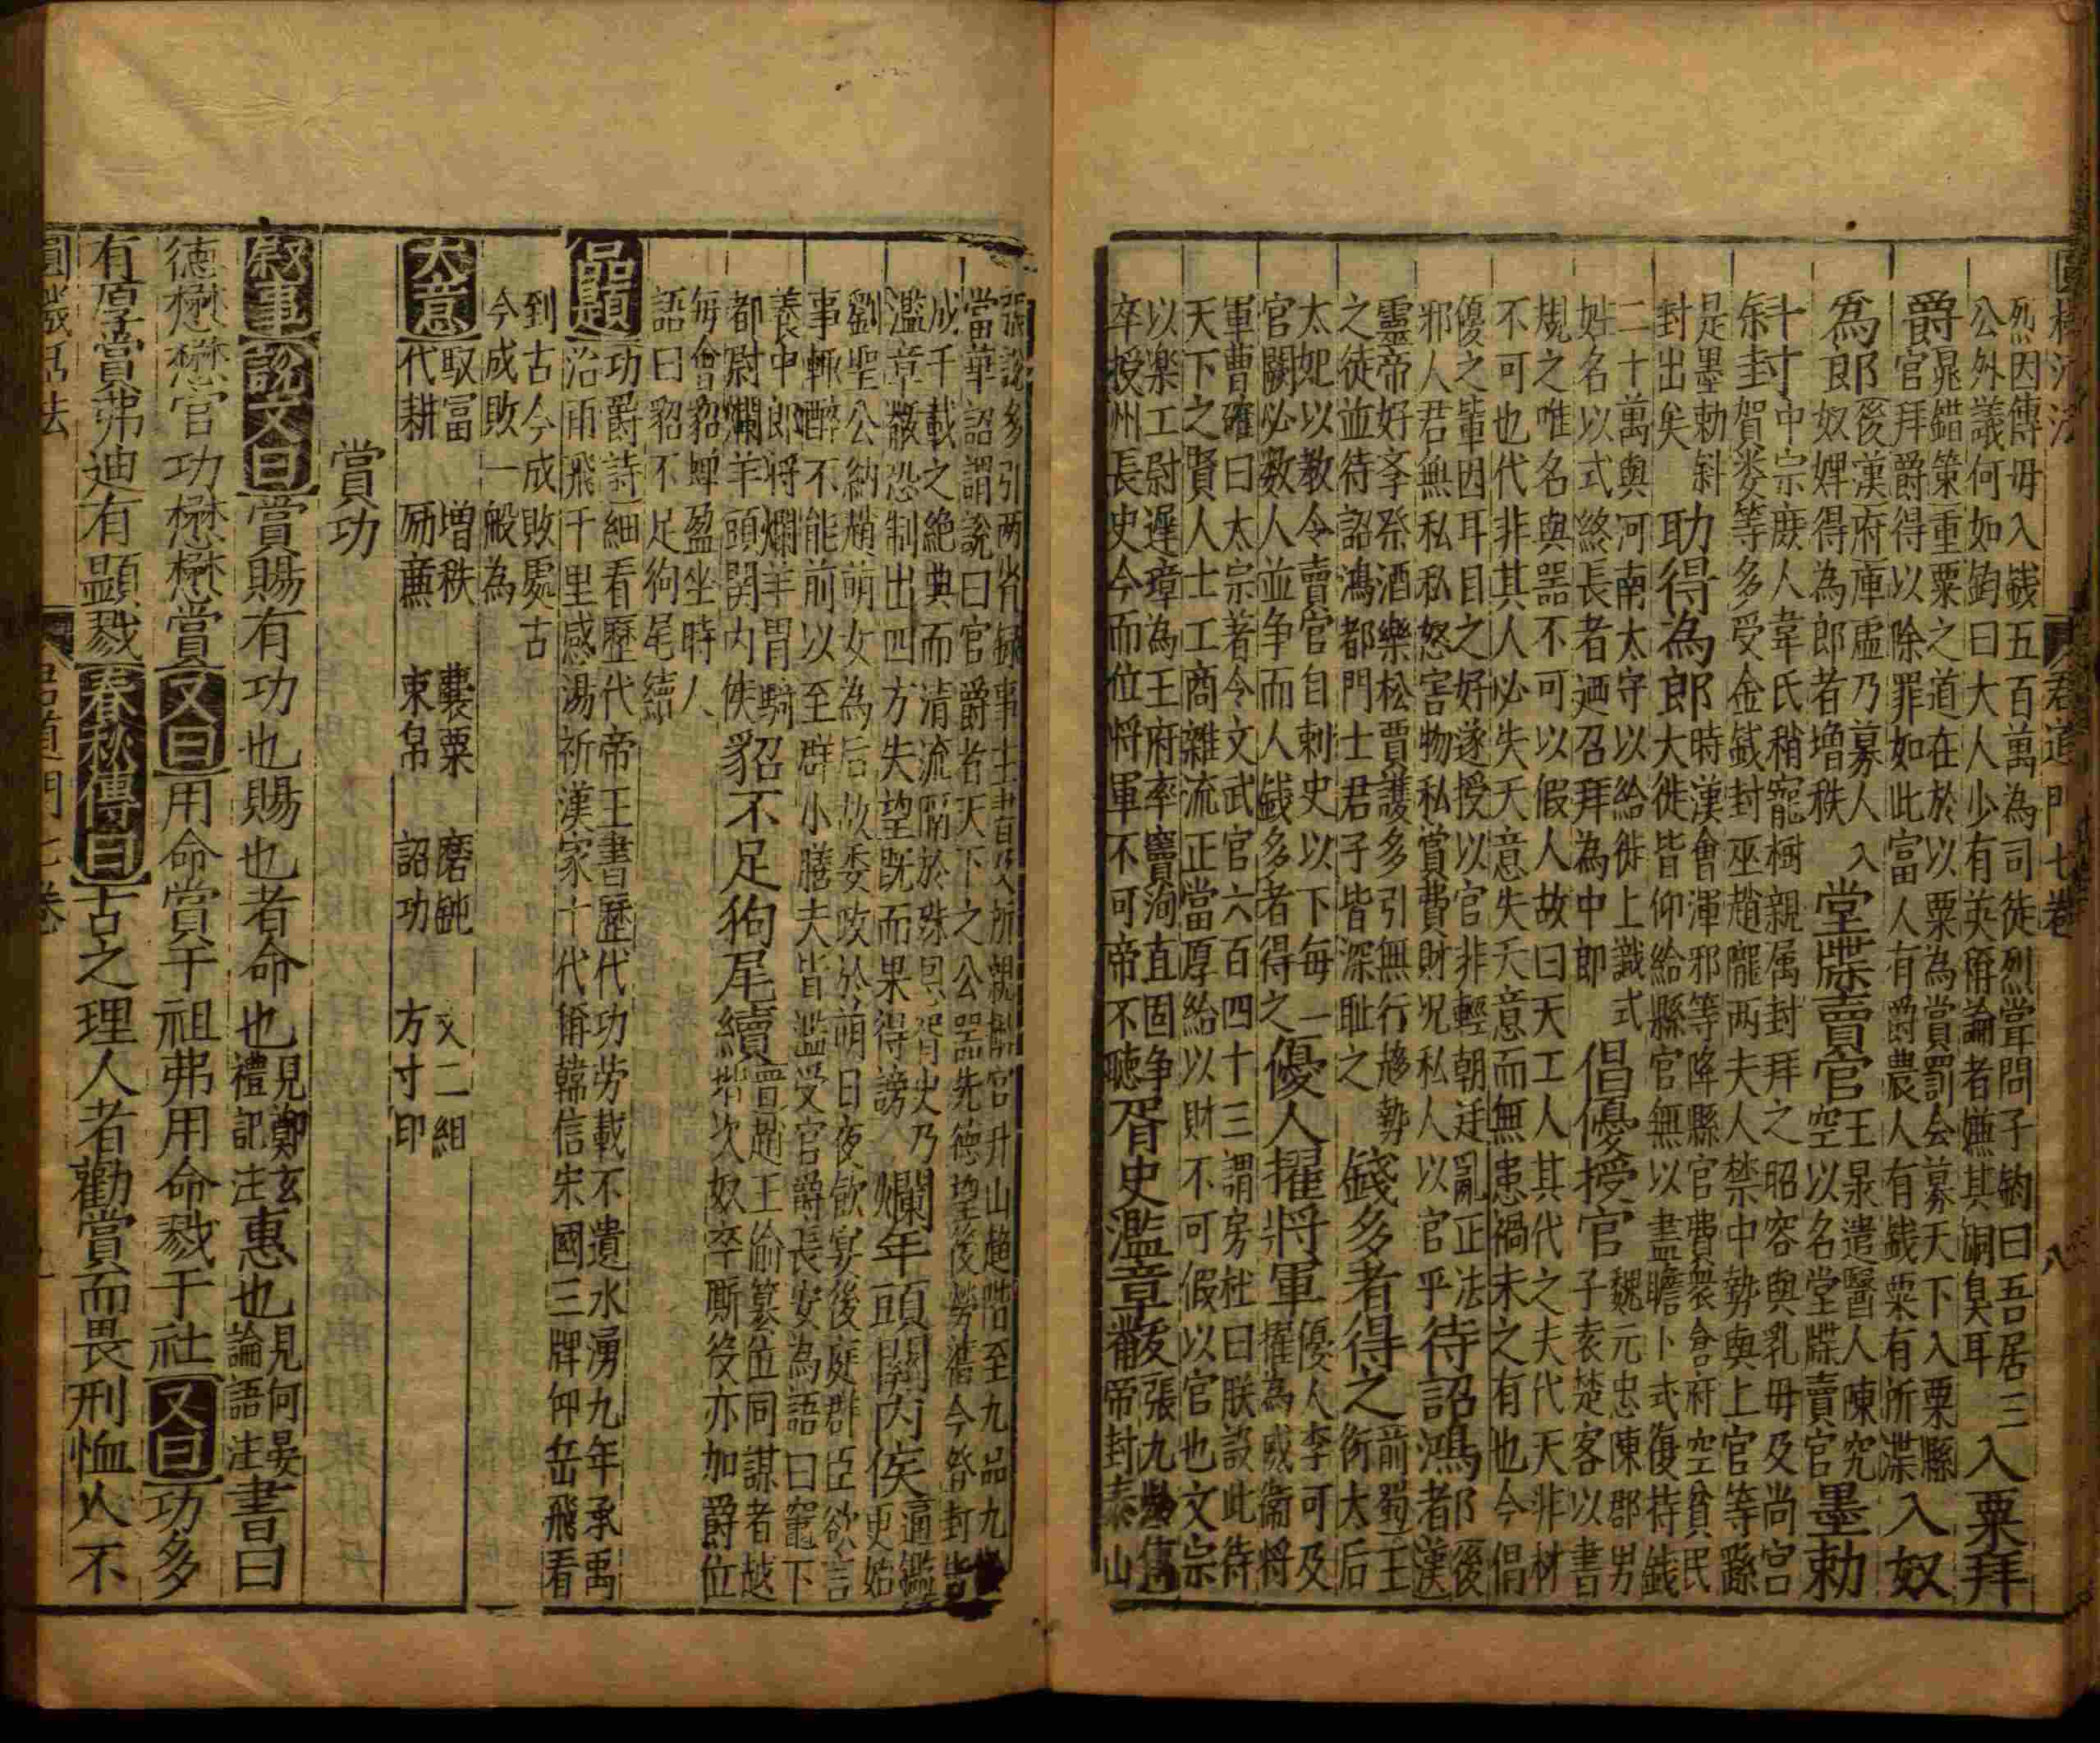 君道門七卷 八
烈因傅毋入錢五百萬為司徒烈嘗問子鈞曰吾居三
公外議何如鈞曰大人少有英称論者嫌其銅臭耳
入粟拜
爵
晁錯策重粟之道在於以粟為賞罰会募天下入粟縣
官拜爵得以除罪如此富人有爵農人有錢粟有所渫
入奴
為郎
後漢府庫虛乃募人入
奴婢得為郎者增秩
堂牒賣官
王泉遣醫人陳究
空以名堂牒賣官
墨勅
斗封
中宗庶人韋氏稍寵樹親属封拜之昭容與乳毋及尚宮
余封賀婁等多受金錢封巫趙隴两夫人禁中勢與上官等繇
是墨勅斜
封出矣
助得為郎
時漢會渾邪等降縣官費衆倉府空貧民
大徙皆仰給縣官無以盡贍卜式復持錢
二十萬與河南太守以給徙上識式
姓名以式終長者廼召拜為中郎
倡優授官
魏元忠陳郡男
子袁楚客以書
規之唯名與器不可以假人故曰天工人其代之夫代天非材
不可也代非其人必失天意失天意而無患禍未之有也今倡
優之輩因耳目之好遂授以官非輕朝廷亂正法
邪人君無私私怒害物私賞費財况私人以官乎
待詔鴻
郎後
者漢
靈帝好孝祭酒樂松賈護多引無行趍勢
之徒並待詔鴻都門士君子皆深耻之
錢多者得之
前蜀王
衍太后
太妃以教令賣官自刺史以下每一
官闕必數人並争而人錢多者得之
優人擢將軍
優人李可及
擢為威衛將
軍曹確曰太宗著令文武官六百四十三謂房杜曰朕設此待
天下之賢人士工商雜流正當厚給以財不可假以官也文宗
以樂工尉遲璋為王府率竇洵直固争
卒授州長史今而位將軍不可帝不聽
胥史濫章黻
張九齡傳
帝封泰山
張說多引两省録事主書及所親攝官升山超階至九品九齡
當華詔謂說曰官爵者天下之公器先德望後勞舊今登封告
成千載之絶典而清流隔於殊恩胥史乃
濫章黻恐制出四方失望既而果得謗
爛羊頭關内侯
通鑑
更始
劉聖公納趙萌女為后故委政於萌日夜飲宴後庭群臣欲言
事輒醉不能前以至群小膳夫皆濫受官爵長安為語曰竈下
養中郎將爛羊胃騎
都尉爛羊頭関内侯
貂不足狗尾續
晉趙王倫篡位同謀者越
揩次奴卒厮役亦加爵位
每會貂蟬盈坐時人
語曰貂不足狗尾續
品題
功爵詩細看歷代帝王書歷代功劳載不遺水湧九年承禹
治雨飛千里感湯祈漢家十代稱韓信宋國三牌仰岳飛看
到古今成敗處古
今成敗一般為
大意
取富 增秩 囊粟 磨鈍 文二組
代耕 励薦 束帛 詔功 方寸印
賞功
叙事
說文曰賞賜有功也賜也者命也見鄭玄禮記注惠也見何晏論語注書曰
德懋懋官功懋懋賞又曰用命賞于祖弗用命戮于社又曰功多
有厚賞弗迪有顯戮春秋傳曰古之理人者勸賞而畏刑恤人不
君道門七卷